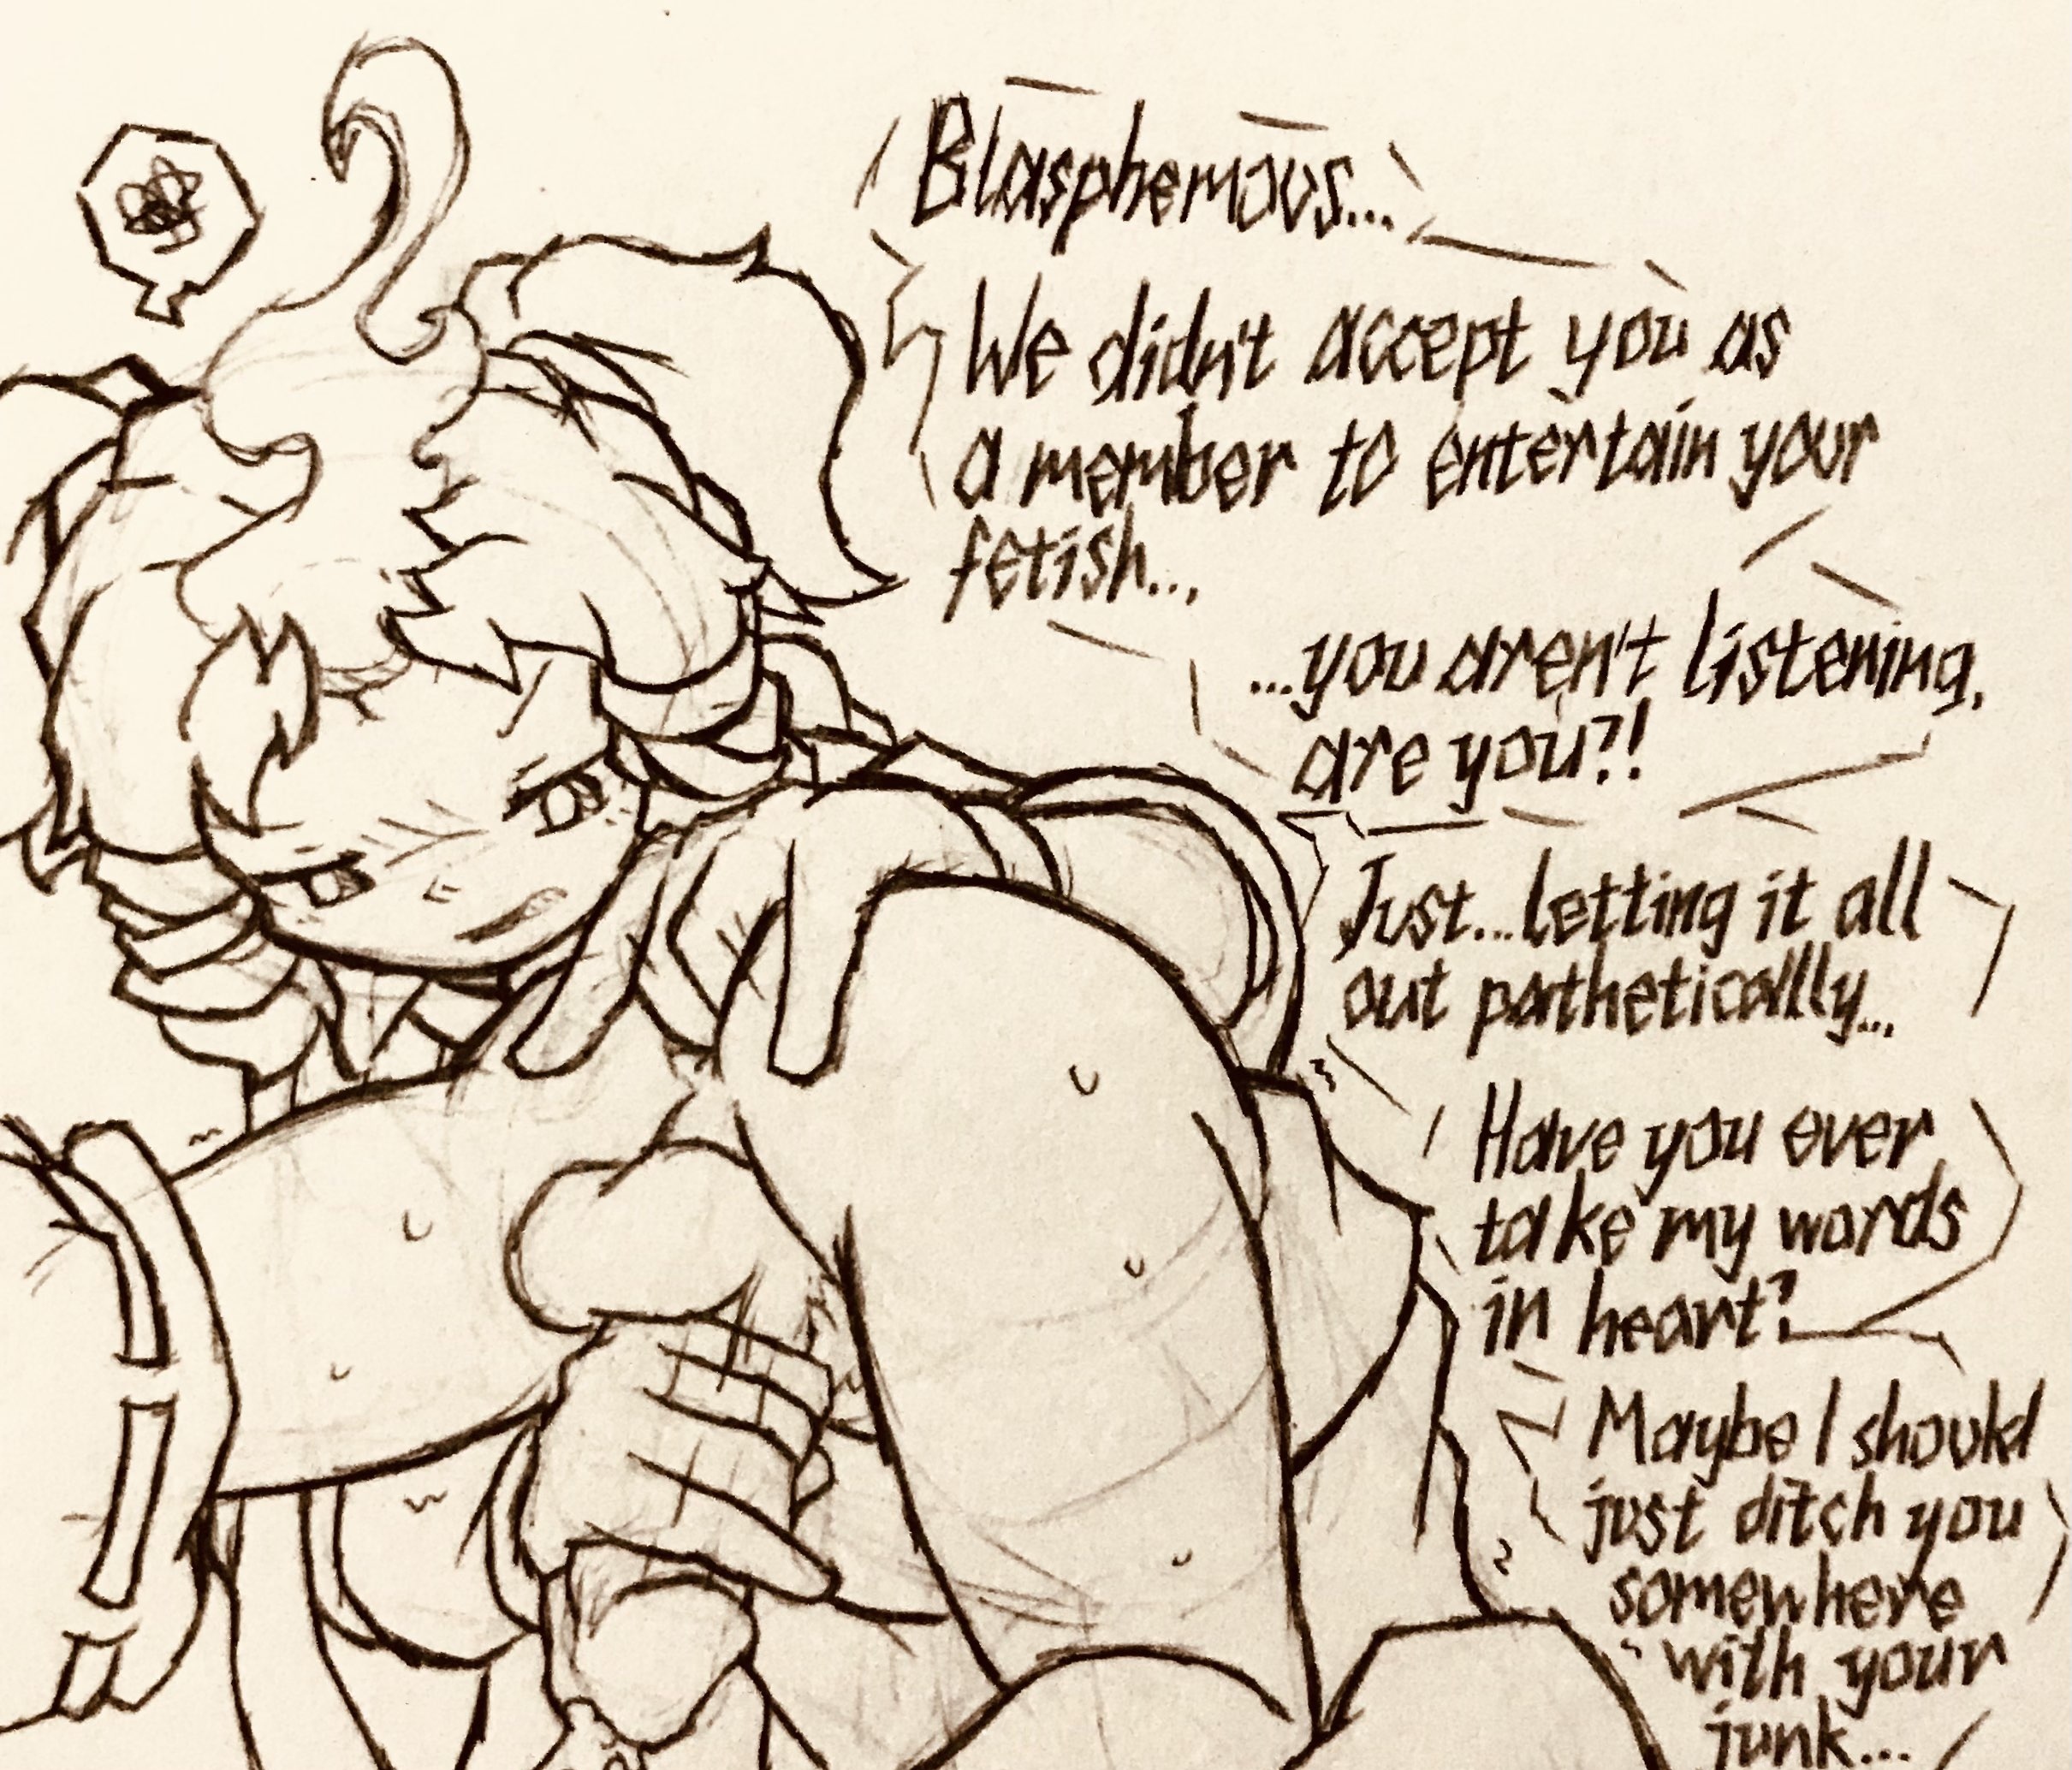 Blasphemous...
We didn't accept you as
a member to entertain your
fetish...
...you aren't listening,
are you?!
Just...letting it all
out pathetically...
Have you ever
take my words
in heart?
Maybe I should
just ditch you
somewhere
with your
junk...